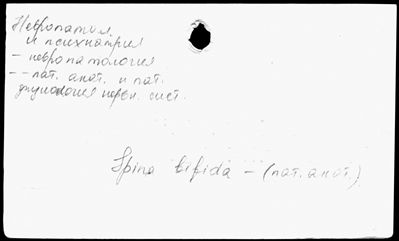 Невропатия
и психиатрия
- невропатология
-- пат. анат. и пат.
физиология нервн. сист.
Spina bifida - (пат. анат.)